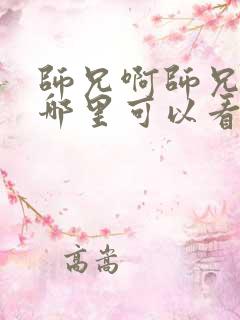 師兄啊師兄
哪里可以看
高嵩